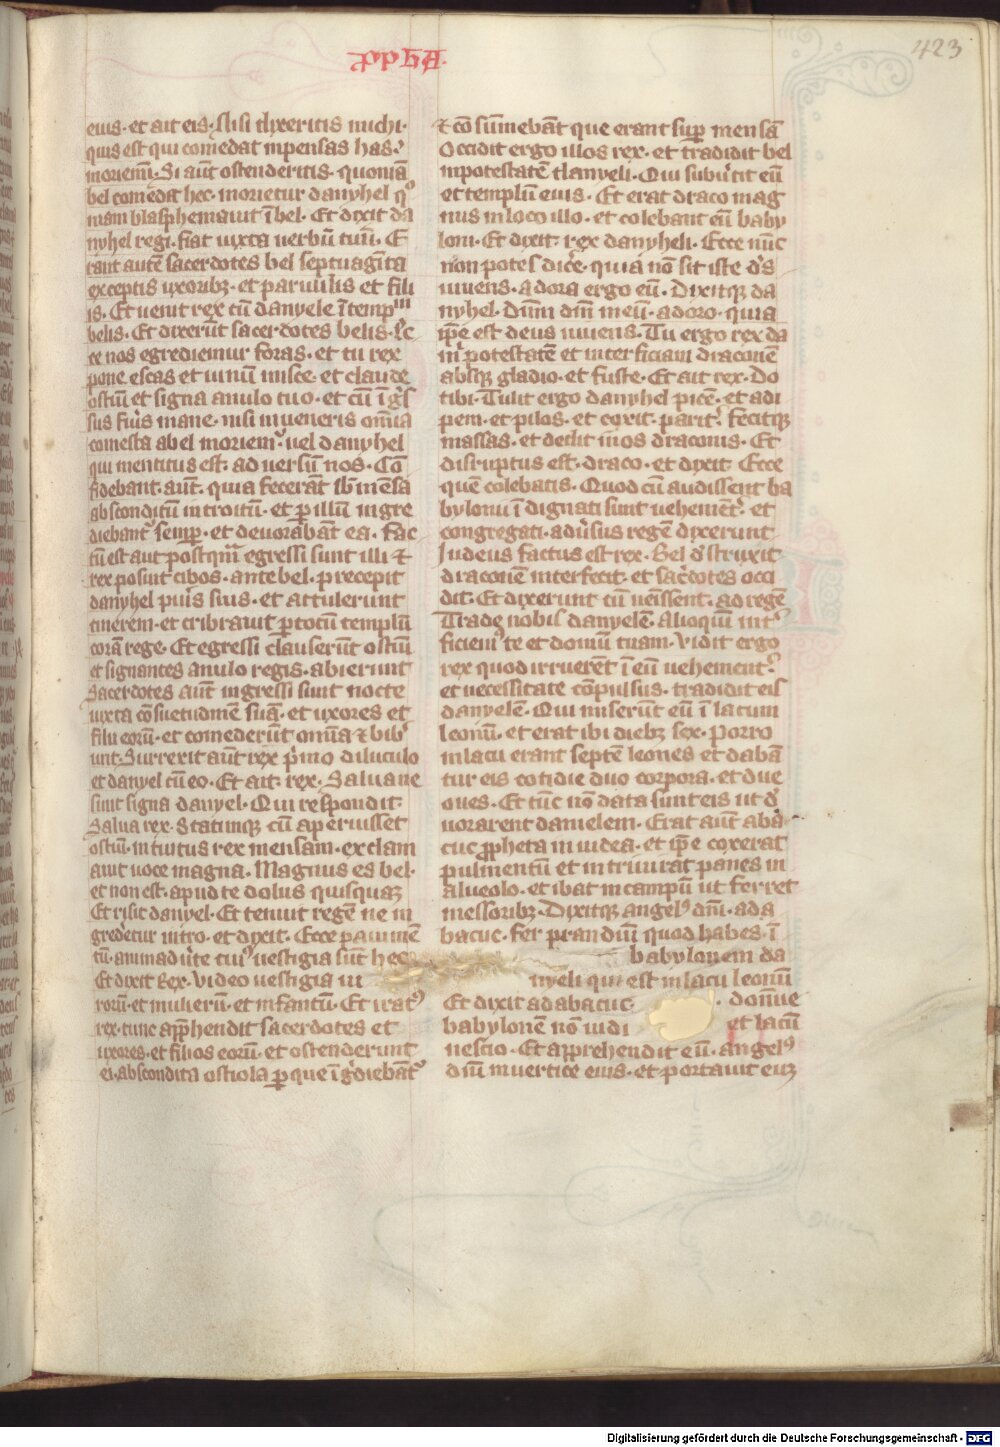 423
ꝓph̄a.
eius · et ait eis · Nisi dixeritis michi ·
quis est qui comedat inpensas has ·
moriemī · Si aūt ostenderitis · quoniā
bel comedat hec · morietur danyhel qͦ
niam blasphemauit ī bel · Et dixit da
nyhel regi · fiat iuxta uerbū tuū · E
rant autē sacerdotes bel septuagīta
exceptis uxoribꝫ · et paruulis et fili
is · Et uenit rex cū danyele ī temp
belis · Et dixerūt sacerdotes belis · Ec
ce nos egrediemur foras · et tu rex
pone escas et uinū misce · et claude
ostiū et signa anulo tuo · et cū īgͥs
sus fūis mane · nisi inueneris omīa
comesta a bel moriemͬ · uel danyhel
qui mentitus est · aduersū nos · Cō
fidebant · aūt · quia fecerāt sb̄ mēsa
absconditū introitū · et ꝑ illū ingre
diebantͬ semꝑ · et deuorabant ea · Fac
tū est aut postqm̄ egressi sunt illi ⁊
rex posuit cibos · ante bel · precepit
danyhel puis suis · et attulerunt
cinerem · et cribrauit ꝑ totū templū
corā rege · Et egressi clauserūt ostiū
et signantes anulo regis · abierunt
Sacerdotes aūt ingressi sunt nocte
iuxta cōsuetudinē suā · et uxores et
filii eorū · et comederūt omīa ⁊ bib
unt · Surrexit aūt rex pͥmo diluculo
et danyel cū eo · Et ait · rex · Saluane
sunt signa danyel · Qui respondit ·
Salua rex · Statimqꝫ cū aperuisset
ostiū · intuitus rex mensam · exclam
auit uoce magna · Magnus es bel ·
et non est · apud te dolus quisquaꝫ
Et risit danyel · Et tenuit regē ne in
gredetur intro · et dixit · Ecce pauimē
tū · animaduerte cuiͥ uestigia sūt hec
Et dixit Rex · Video uestigia ui
rorū · et mulierū · et infantū · Et iratͥ
rex · tunc app̄hendit sacerdotes et
uxores · et filios eorū · et ostenderunt
ei · abscondita ostiola ꝑ que īgͣdiebātͬ
⁊ cō sūmebāt que erant suꝑ mensā
Occidit ergo illos rex · et tradidit bel
inpotestatē danyeli · Qui subuͥtit eū
et templū eius · Et erat draco mag
nus in loco illo · et colebant eū baby
loni · Et dixit · rex danyheli · Ecce nūc
non potes dicͤe · quia nō sit iste dͥs
uiuens · adora ergo eū · Dixitqꝫ da
nyhel · Dūm dīn meū · adoro · quia
ipͤe est deus uiuens · Tu ergo rex da
mͥ potestatē et interficiam draconē
absqꝫ gladio · et fuste · Et ait rex · Do
tibi · Tulit ergo danyhel picē · et adi
pem · et pilos · et coxit · paritͬ · fecitqꝫ
massas · et dedit in os draconis · Et
disruptus est · draco · et dixit · Ecce
quē colebatis · Quod cū audissent ba
bylonii īdignati sunt uehementͬ · et
congregati · aduͥsus regē dixerunt
Iudeus factus est rex · Bel dͥstruxit
draconē interfecit · et sacͤdotes occi
dit · Et dixerunt cū uēissent · ad regē
Trade nobis danyelē · Alioquī intͬ
ficiemͥ te et domū tuam · Vidit ergo
rex quod irruerēt ī eū uehementͬ ·
et necessitate cōpulsus · tradidit eis
danyelē · Qui miserūt eū ī lacum
leonū · et erat ibi diebꝫ sex · Porro
in lacu erant septē leones et dabā
tur eis cotidie duo corpora · et due
oues · Et tūc nō data sunt eis ut dͤ
uorarent danielem · Erat aūt aba
cuc ꝓpheta in iudea · et ipͤe coxerat
pulmentū et intriuerat panes in
alueolo · et ibat in campū ut ferret
messoribꝫ · Dixitqꝫ angelͥ dn̄i · ad a
bacuc · fer prandiū quod habes · ī
babylonem da
nyeli qui est in lacu leonū
Et dixit ad abacuc · dom̄ne
babylonē nō uidi et lacū
nescio · Et apprehendit eū · angelͥ
dn̄i in uertice eius · et portauit euꝫ
Digitalisierung gefördert durch die Deutsche Forschungsgemeinschaft - DFG